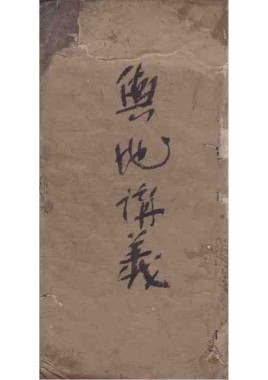 輿地講義